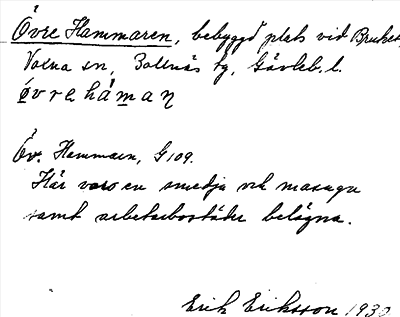 Övre Hammaren, bebyggd plats vid Bruket,
Voxna sn, Bollnäs tg, Gävleb. l.
övrehåman
Öv. Hammaren, G 109.
Här voro en smedja och masugn
samt arbetarbostäder belägna.
Erik Eriksson 1930